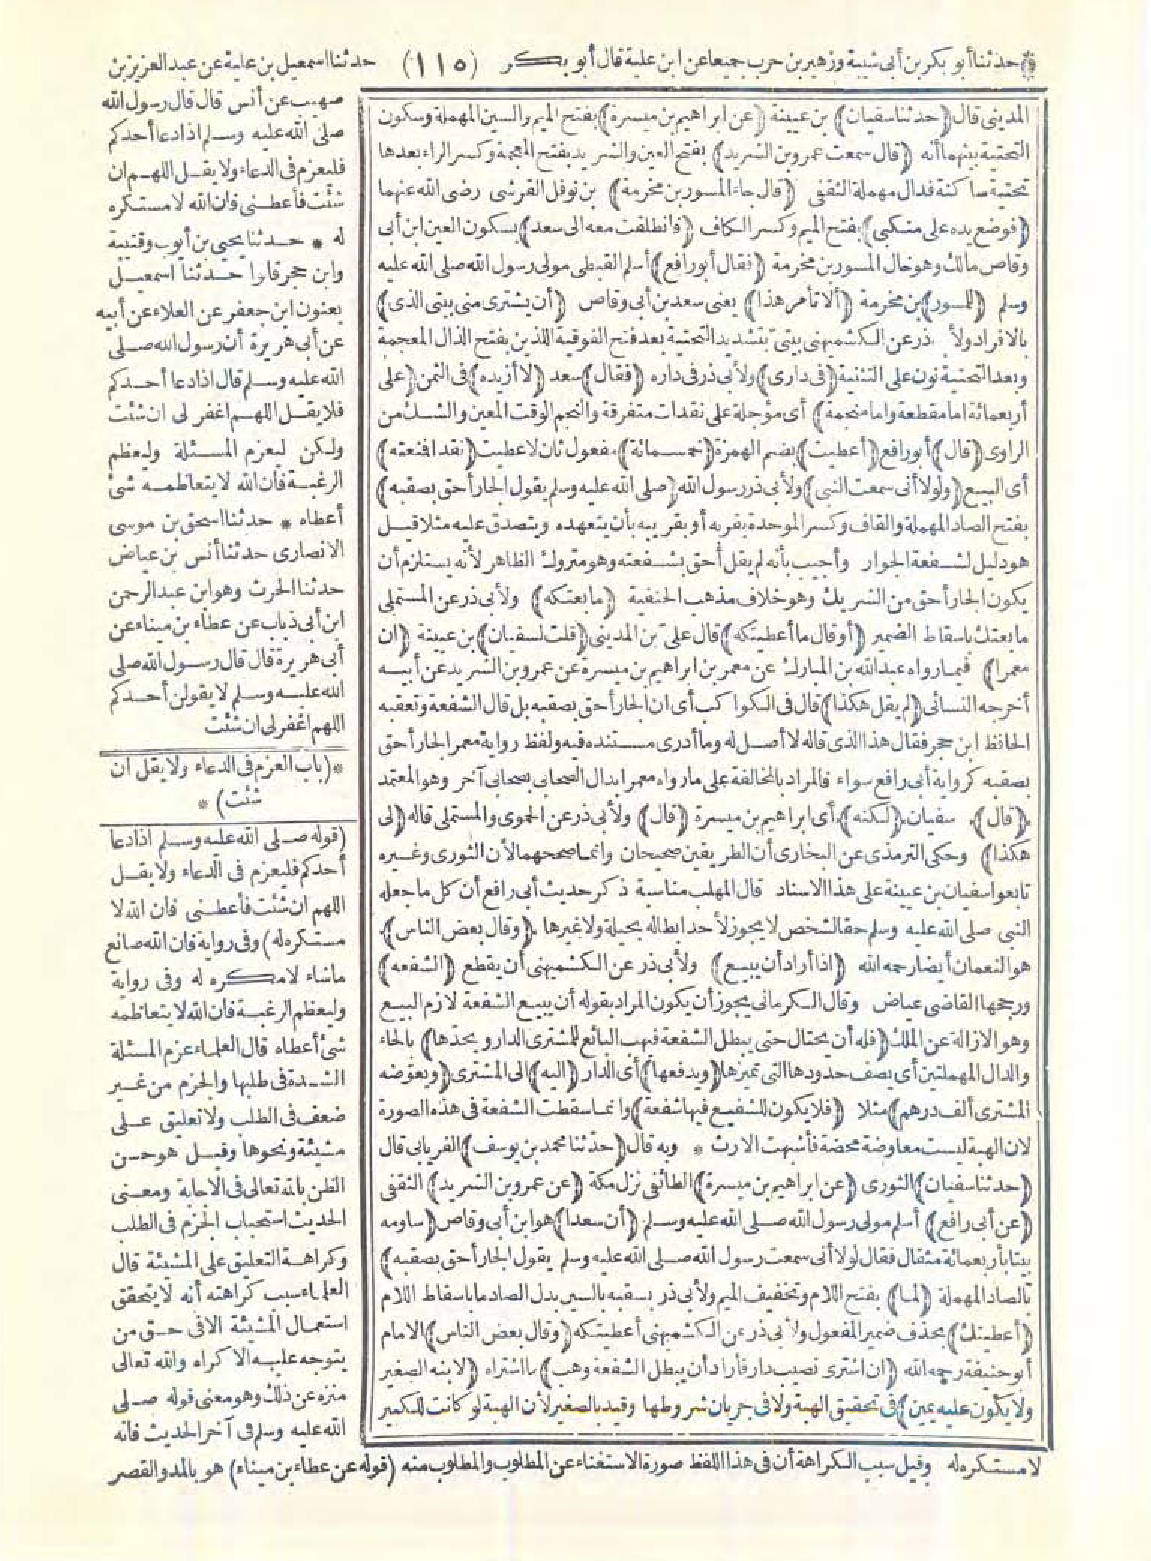 * حدثنا أبو بكر بن أبي شيبة وزهير بن حرب جميعا عن ابن علية قال أبو بكر (١١٥) حدثنا اسمعيل بن علية عن عبد العزيز بن
صهيب عن أنس قال قال رسول الله
صلى الله عليه وسلم اذا دعا أحدكم
فليعزم فى الدعاء ولا يقل اللهم ان
شئت فأعطنى فان الله لا مستكره
له * حدثنا يحيى بن أيوب وقتيبة
وابن حجر قالوا حدثنا اسمعيل
يعنون ابن جعفر عن العلاء عن أبيه
عن أبى هريرة أن رسول الله صلى
الله عليه وسلم قال اذا دعا أحدكم
فلا يقل اللهم اغفر لى ان شئت
ولكن ليعزم المسئلة وليعظم
الرغبة فان الله لا يتعاظمه شئ
أعطاه * حدثنا اسحق بن موسى
الانصارى حدثنا أنس بن عياض
حدثنا الحرث وهو ابن عبد الرحمن
ابن أبى ذباب عن عطاء بن ميناء عن
أبى هريرة قال قال رسول الله صلى
الله عليه وسلم لا يقولن أحدكم
اللهم اغفر لى ان شئت
*(باب العزم فى الدعاء ولا يقل ان
شئت)*
(قوله صلى الله عليه وسلم اذا دعا
أحدكم فليعزم فى الدعاء ولا يقل
اللهم ان شئت فأعطنى فان الله لا
مستكره له) وفى رواية فان الله صانع
ماشاء لا مكره له وفى رواية
وليعظم الرغبة فان الله لا يتعاظمه
شئ أعطاه قال العلماء عزم المسئلة
الشدة فى طلبها والجزم من غير
ضعف فى الطلب ولا تعليق على
مشيئة ونحوها وقيل هو حسن
الظن بالله تعالى فى الاجابة ومعنى
الحديث استحباب الجزم فى الطلب
وكراهة التعليق على المشيئة قال
العلماء سبب كراهته أنه لا يتحقق
استعمال المشيئة الا فى حق من
يتوجه عليه الاكراه والله تعالى
منزه عن ذلك وهو معنى قوله صلى
الله عليه وسلم فى آخر الحديث فانه
المدينى قال (حدثنا سفيان) بن عيينة (عن ابراهيم بن ميسرة) بفتح الميم والسين المهملة وسكون
التحتية بينهما أنه (قال سمعت عمرو بن الشريد) بفتح العين والشريد بفتح المعجمة وكسر الراء بعدها
تحتية ساكنة فدال مهملة الثقفى (قال جاء المسور بن مخرمة) بن نوفل القرشى رضى الله عنهما
(فوضع يده على منكبى) بفتح الميم وكسر الكاف (فانطلقت معه الى سعد) بسكون العين ابن أبى
وقاص مالك وهو خال المسور بن مخرمة (فقال أبو رافع) أسلم القبطى مولى رسول الله صلى الله عليه
وسلم (للمسور) بن مخرمة (ألا تأمر هذا) يعنى سعد بن أبى وقاص (أن يشترى منى بيتى الذى)
بالافراد ولأبى ذر عن الكشميهنى بيتىّ بتشديد التحتية بعد فتح الفوقية اللذين بفتح الذال المعجمة
وبعد التحتية نون على التثنية (فى دارى) ولأبى ذر فى داره (فقال) سعد (لا أزيده) فى الثمن (على
أربعمائة اما مقطعة واما منجمة) أى مؤجلة على نقدات متفرقة والنجم الوقت المعين والشك من
الراوى (قال) أبو رافع (أعطيت) بضم الهمزة (خمسمائة) مفعول ثان لاعطيت (نقدا فمنعته)
أى البيع (ولولا أنى سمعت النبى) ولأبى ذر رسول الله (صلى الله عليه وسلم يقول الجار أحق بصقبه)
بفتح الصاد المهملة والقاف وكسر الموحدة بقربه أو بقريبه بأن يتعهده ويتصدق عليه مثلا قيل
هو دليل لشفعة الجوار وأجيب بأنه لم يقل أحق بشفعته وهو متروك الظاهر لأنه يستلزم أن
يكون الجار أحق من الشريك وهو خلاف مذهب الحنفية (ما بعتكه) ولأبى ذر عن المستملى
ما بعتك باسقاط الضمير (أو قال ما أعطيتكه) قال علىّ بن المدينى (قلت لسفيان) بن عيينة (ان
معمرا) فيما رواه عبد الله بن المبارك عن معمر بن ابراهيم بن ميسرة عن عمرو بن الشريد عن أبيه
أخرجه النسائى (لم يقل هكذا) قال فى الكواكب أى ان الجار أحق بصقبه بل قال الشفعة وتعقبه
الحافظ ابن حجر فقال هذا الذى قاله لا أصل له وما أدرى مستنده فيه ولفظ رواية معمر الجار أحق
بصقبه كرواية أبى رافع سواء فالمراد بالمخالفة على ما رواه معمر ابدال الصحابى بصحابى آخر وهو المعتمد
(قال) سفيان (لكنه) أى ابراهيم بن ميسرة (قال) ولأبى ذر عن الحموى والمستملى قاله (لى
هكذا) وحكى الترمذى عن البخارى أن الطريقين صحيحان وانما صححهما لأن الثورى وغيره
تابعوا سفيان بن عيينة على هذا الاسناد قال المهلب مناسبة ذكر حديث أبى رافع أن كل ما جعله
النبى صلى الله عليه وسلم حقا لشخص لا يجوز لأحد ابطاله بحيلة ولا غيرها (وقال بعض الناس)
هو النعمان أيضا رحمه الله (اذا أراد أن يبيع) ولأبى ذر عن الكشميهنى أن يقطع (الشفعة)
ورجحها القاضى عياض وقال الكرمانى يجوز أن يكون المراد بقوله أن يبيع الشفعة لازم البيع
وهو الازالة عن الملك (فله أن يحتال حتى يبطل الشفعة فيهب البائع للمشترى الدار ويحدّها) بالحاء
والدال المهملتين أى يصف حدودها التى تميزها (ويدفعها) أى الدار (اليه) الى المشترى (ويعوّضه
المشترى ألف درهم) مثلا (فلا يكون للشفيع فيها شفعة) وانما سقطت الشفعة فى هذه الصورة
لان الهبة ليست معاوضة محضة فأشبهت الارث * وبه قال (حدثنا محمد بن يوسف) الفريابى قال
(حدثنا سفيان) الثورى (عن ابراهيم بن ميسرة) الطائفى نزل مكة (عن عمرو بن الشريد) الثقفى
(عن أبى رافع) أسلم مولى رسول الله صلى الله عليه وسلم (أن سعدا) هو ابن أبى وقاص (ساومه
بيتا بأربعمائة مثقال فقال لولا أنى سمعت رسول الله صلى الله عليه وسلم يقول الجار أحق بصقبه)
بالصاد المهملة (لما) بفتح اللام وتخفيف الميم ولأبى ذر بسقبه بالسين بدل الصاد ما باسقاط اللام
(أعطيتك) بحذف ضمير المفعول ولأبى ذر عن الكشميهنى أعطيتكه (وقال بعض الناس) الامام
أبو حنيفة رحمه الله (ان اشترى نصيب دار فأراد أن يبطل الشفعة وهب) ما اشتراه (لابنه الصغير
ولا يكون عليه يمين) فى تحقيق الهبة ولا فى جريان شروطها وقيد بالصغير لأن الهبة لو كانت للكبير
لا مستكره له وقيل سبب الكراهة أن فى هذا اللفظ صورة الاستغناء عن المطلوب والمطلوب منه (قوله عن عطاء بن ميناء) هو بالمد والقصر